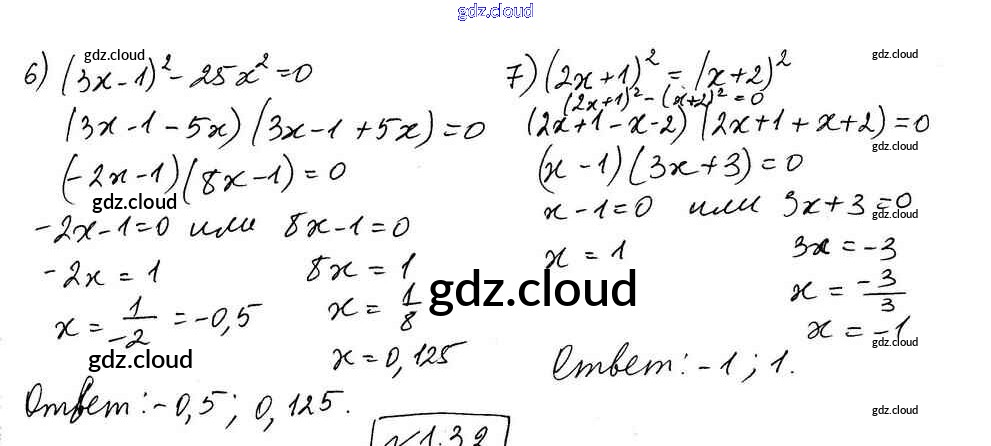 gdz.cloud
6) (3x-1)² - 25x² = 0
(3x-1-5x)(3x-1+5x)=0
(-2x-1)(8x-1)=0
-2x-1=0 или 8x-1=0
-2x = 1
8x = 1
x = 1/-2 = -0,5
x = 1/8
x = 0,125
Ответ: -0,5; 0,125.
7) (2x+1)² = (x+2)²
(2x+1)² - (x+2)² = 0
(2x+1-x-2)(2x+1+x+2)=0
(x-1)(3x+3)=0
x-1=0 или 3x+3=0
x = 1
3x = -3
x = -3/3
x = -1
Ответ: -1; 1.
gdz.cloud
gdz.cloud
gdz.cloud
gdz.cloud
gdz.cloud
gdz.cloud
gdz.cloud
gdz.cloud
gdz.cloud